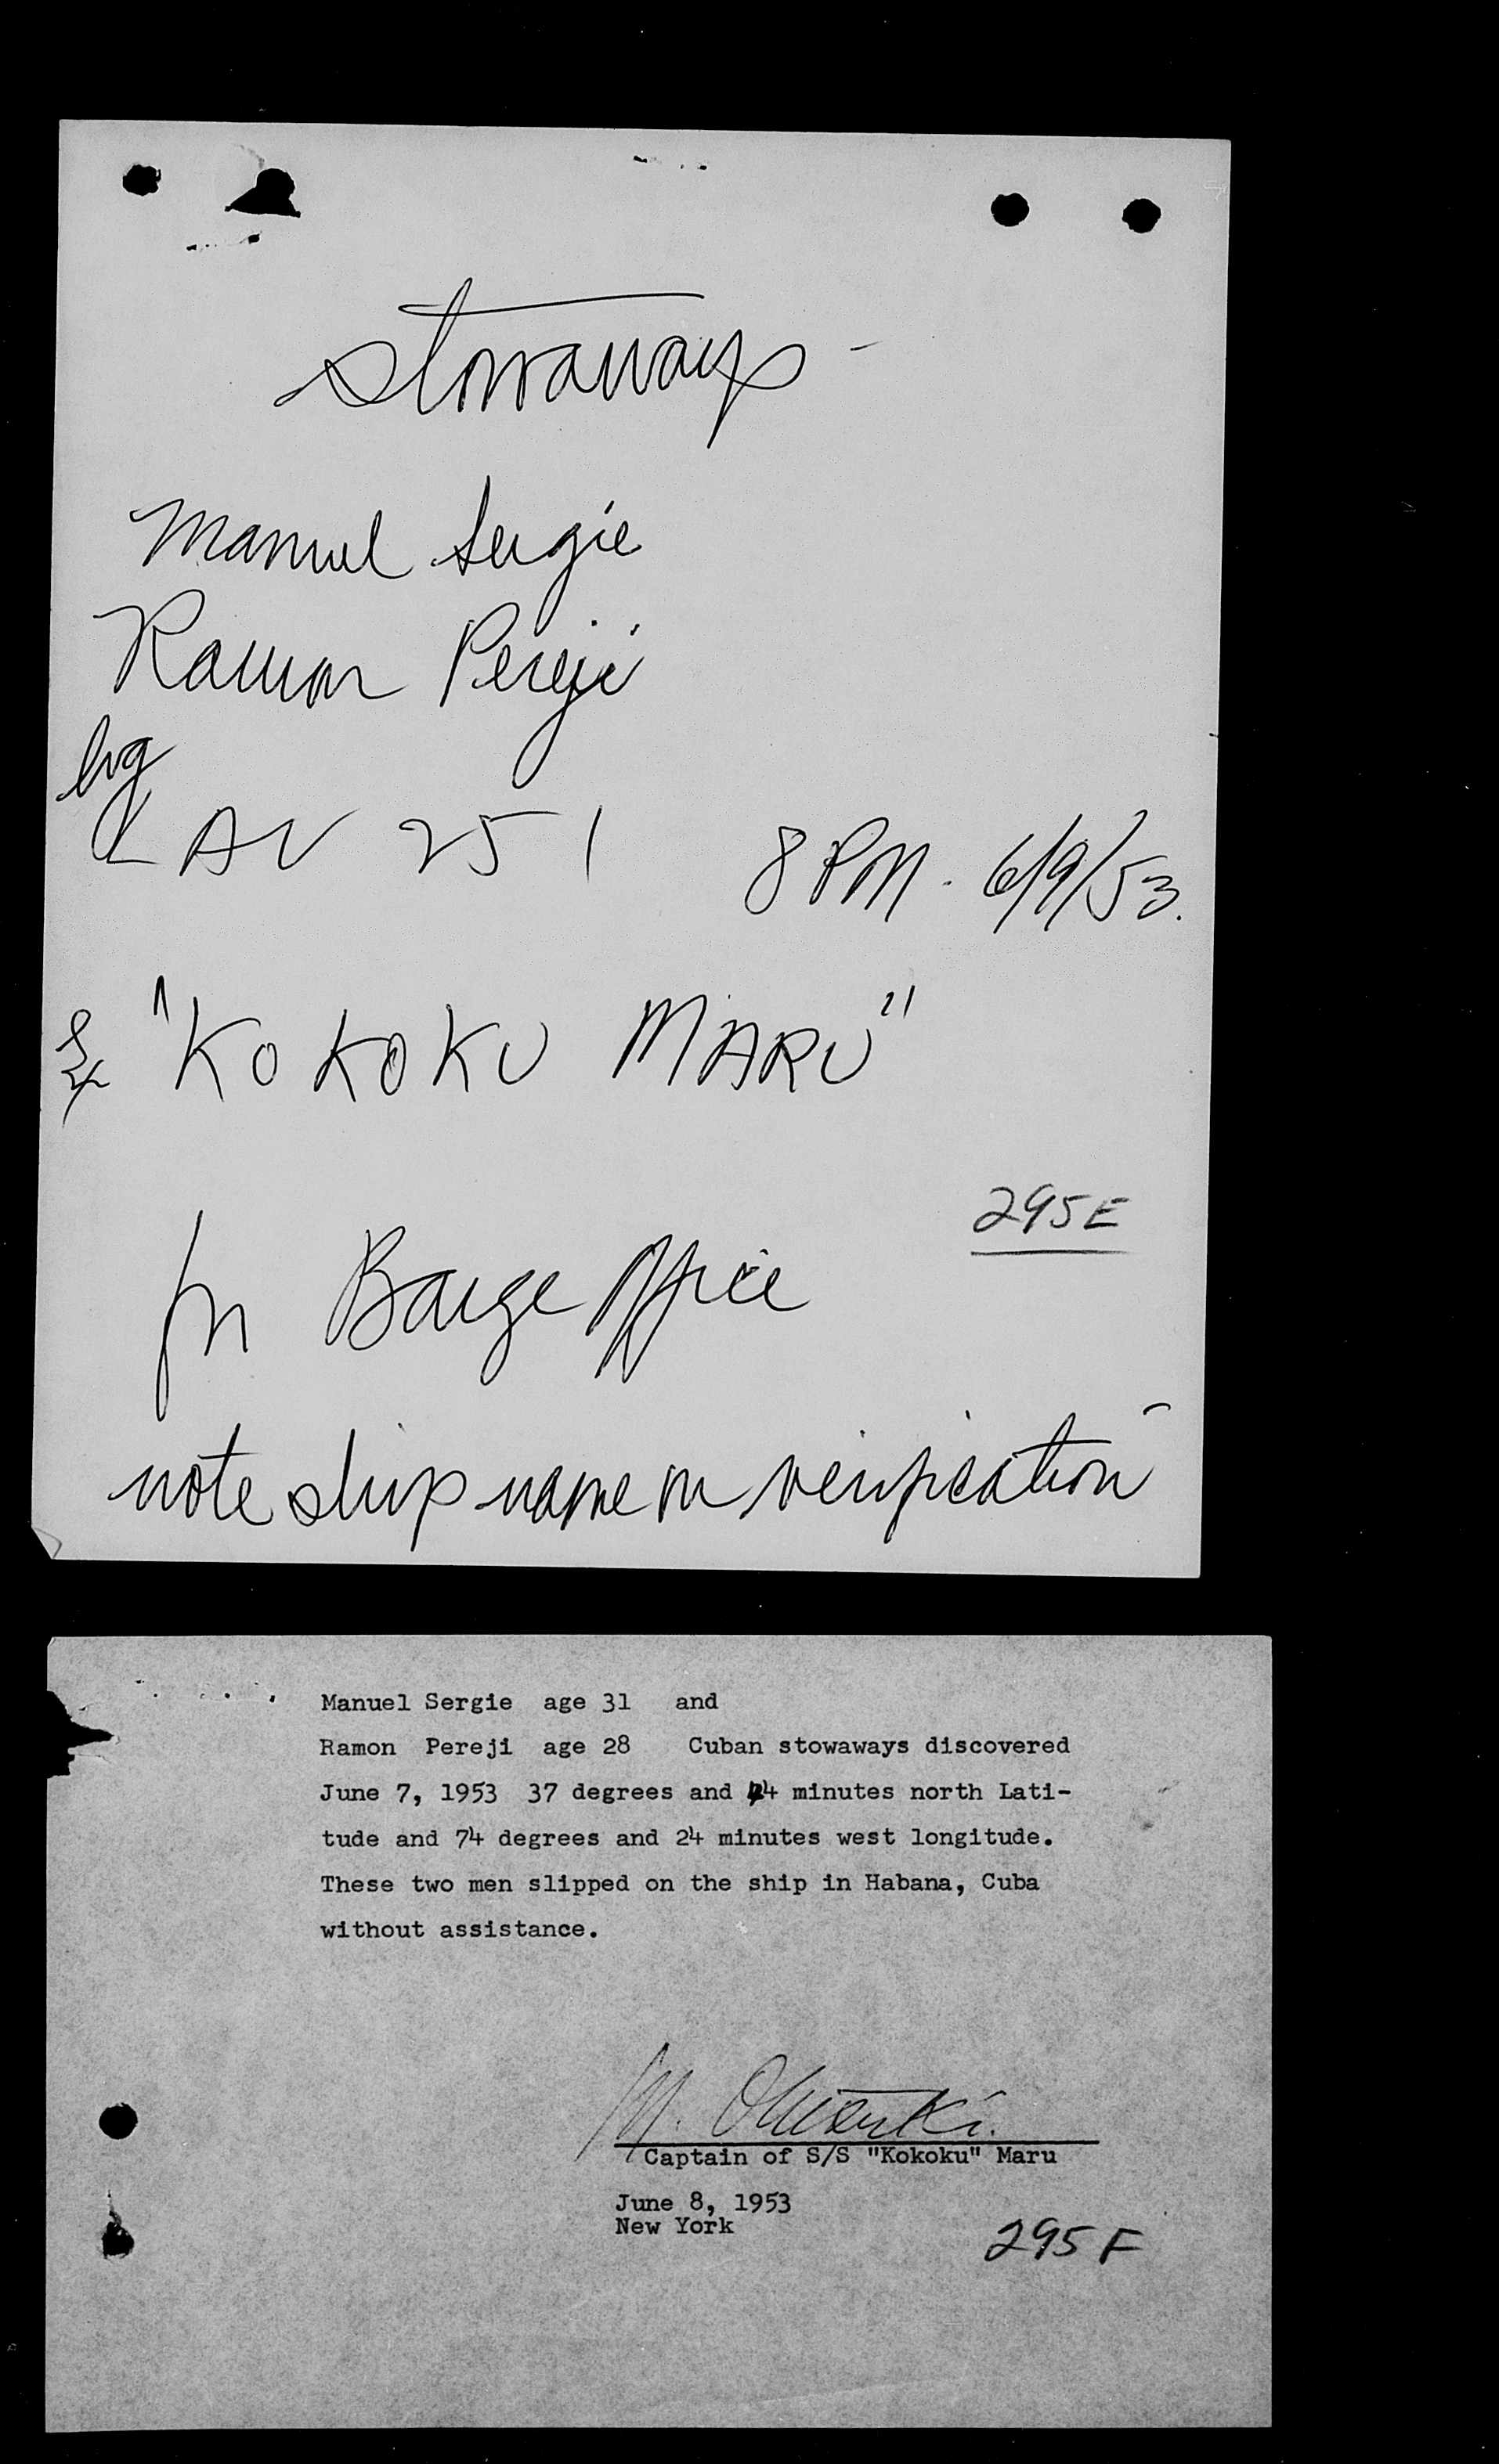 Stowaways -
Manuel Sergie
Ramon Pereji
lvg
LAV 251 8 PM. 6/9/53.
"KOKOKU MARU"
295E
fm Barge Office
note ship name on verification -
Manuel Sergie age 31 and
Ramon Pereji age 28 Cuban stowaways discovered
June 7, 1953 37 degrees and 24 minutes north Lati-
tude and 74 degrees and 24 minutes west longitude.
These two men slipped on the ship in Habana, Cuba
without assistance.
M.
Captain of S/S "Kokoku" Maru
June 8, 1953
New York
295 F